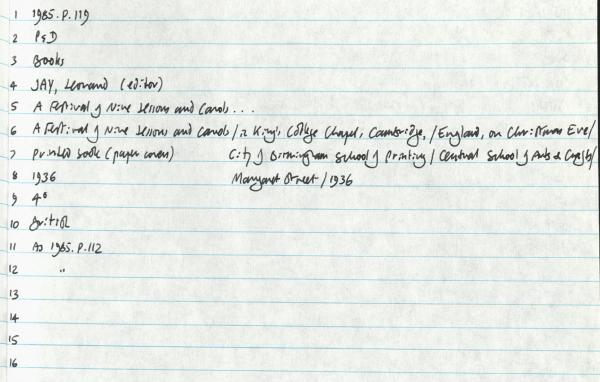 1 1985.P.119
2 P&D
3 Books
4 JAY, Leonard (editor)
5 A Festival of Nine Lessons and Carols...
6 A Festival of Nine Lessons and Carols / in King's College Chapel, Cambridge, / England, on Christmas Eve /
7 Printed book (paper covers) City of Birmingham School of Printing / Central School of Arts & Crafts /
8 1936 Margaret Street / 1936
9 4°
10 British
11 As 1985.P.112
12 "
13
14
15
16